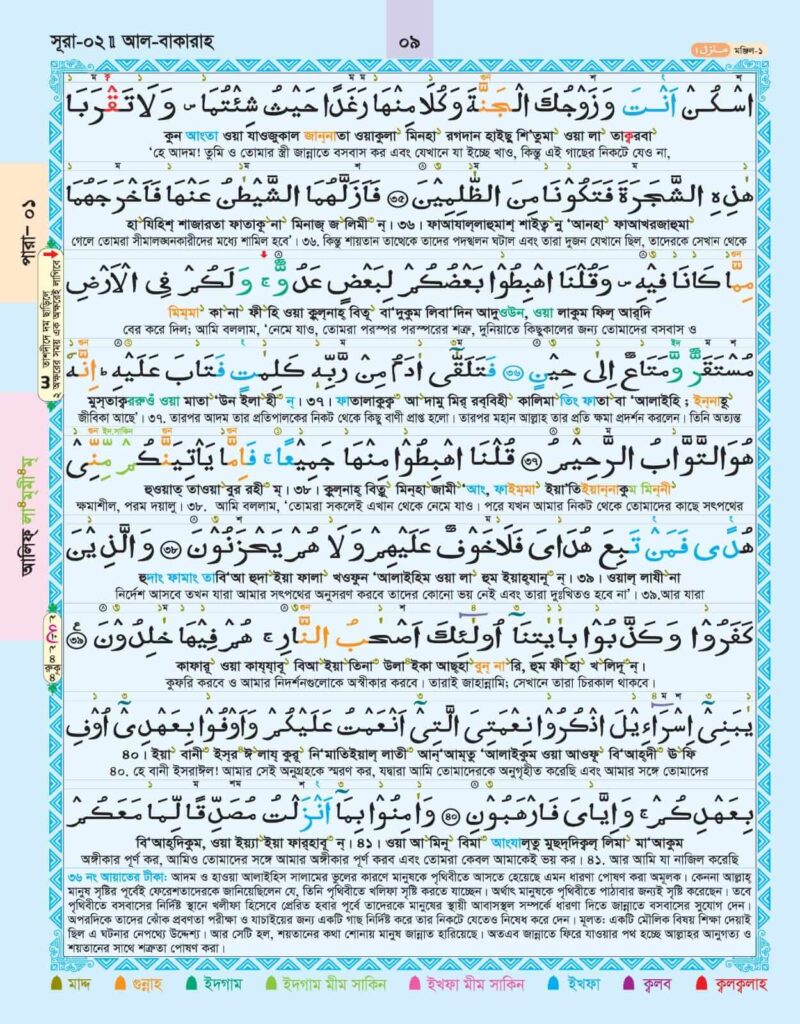 সূরা-০২ ৷৷ আল-বাকারাহ
০৯
منزل ١
মঞ্জিল-১
পারা- ০১
اسْكُنْ اَنْتَ وَزَوْجُكَ الْجَنَّةَ وَكُلَا مِنْهَا رَغَدًا حَيْثُ شِئْتُمَا ۪ وَلَا تَقْرَبَا
কুন আংতা ওয়া যাওজুকাল জান্নাতা ওয়াকুলা মিনহা রগদান হাইছু শি'তুমা ওয়া লা তাক্বরবা
'হে আদম! তুমি ও তোমার স্ত্রী জান্নাতে বসবাস কর এবং যেখানে যা ইচ্ছে খাও, কিন্তু এই গাছের নিকটে যেও না,
هٰذِهِ الشَّجَرَةَ فَتَكُوْنَا مِنَ الظّٰلِمِيْنَ ﴿٣٥﴾ فَاَزَلَّهُمَا الشَّيْطٰنُ عَنْهَا فَاَخْرَجَهُمَا
হা যিহিশ্ শাজারতা ফাতাকূ না মিনাজ্ জ লিমী ন্। ৩৬। ফাআযাল্লাহুমাশ্ শাইত্ব নু 'আনহা ফাআখরজাহুমা
গেলে তোমরা সীমালঙ্ঘনকারীদের মধ্যে শামিল হবে'। ৩৬. কিন্তু শায়তান তাথেকে তাদের পদস্খলন ঘটাল এবং তারা দুজন যেখানে ছিল, তাদেরকে সেখান থেকে
مِمَّا كَانَا فِيْهِ ۪ وَقُلْنَا اهْبِطُوْا بَعْضُكُمْ لِبَعْضٍ عَدُوٌّ ۚ وَلَكُمْ فِى الْاَرْضِ
মিম্মা কা না ফী হি ওয়া কুল্নাহ্ বিতূ বা'দুকুম লিবা'দিন আদুওউন, ওয়া লাকুম ফিল্ আর্‌দি
বের করে দিল; আমি বললাম, 'নেমে যাও, তোমরা পরস্পর পরস্পরের শত্রু, দুনিয়াতে কিছুকালের জন্য তোমাদের বসবাস ও
مُسْتَقَرٌّ وَّمَتَاعٌ اِلٰى حِيْنٍ ﴿٣٦﴾ فَتَلَقّٰٓى اٰدَمُ مِنْ رَّبِّهٖ كَلِمٰتٍ فَتَابَ عَلَيْهِ ؕ اِنَّهٗ
মুস্‌তাক্বররুওঁ ওয়া মাতা 'উন ইলা হী ন্। ৩৭। ফাতালাক্ক্ব আ দামু মির্ রব্বিহী কালিমা তিং ফাতা বা 'আলাইহি ; ইন্নাহূ
জীবিকা আছে'। ৩৭. তারপর আদম তার প্রতিপালকের নিকট থেকে কিছু বাণী প্রাপ্ত হলো। তারপর মহান আল্লাহ তার প্রতি ক্ষমা প্রদর্শন করলেন। তিনি অত্যন্ত
هُوَ التَّوَّابُ الرَّحِيْمُ ﴿٣٧﴾ قُلْنَا اهْبِطُوْا مِنْهَا جَمِيْعًا ۚ فَاِمَّا يَاْتِيَنَّكُمْ مِّنِّىْ
হুওয়াত্ তাওয়া বুর রহী ম্। ৩৮। কুল্নাহ্ বিতূ মিন্‌হা জামী 'আং, ফাইম্মা ইয়া'তিইয়ান্নাকুম মিন্নী
ক্ষমাশীল, পরম দয়ালু। ৩৮. আমি বললাম, 'তোমরা সকলেই এখান থেকে নেমে যাও। পরে যখন আমার নিকট থেকে তোমাদের কাছে সৎপথের
هُدًى فَمَنْ تَبِعَ هُدَاىَ فَلَا خَوْفٌ عَلَيْهِمْ وَلَا هُمْ يَحْزَنُوْنَ ﴿٣٨﴾ وَالَّذِيْنَ
হুদাং ফামাং তাবি'আ হুদা ইয়া ফালা খওফুন 'আলাইহিম ওয়া লা হুম ইয়াহ্‌যানূ ন্। ৩৯। ওয়াল্ লাযী না
নির্দেশ আসবে তখন যারা আমার সৎপথের অনুসরণ করবে তাদের কোনো ভয় নেই এবং তারা দুঃখিতও হবে না'। ৩৯.আর যারা
كَفَرُوْا وَكَذَّبُوْا بِاٰيٰتِنَاۤ اُولٰٓئِكَ اَصْحٰبُ النَّارِ ۚ هُمْ فِيْهَا خٰلِدُوْنَ ﴿٣٩﴾
কাফারূ ওয়া কায্‌যাবূ বিআ ইয়া তিনা উলা ইকা আছ্‌হা বুন্ না রি, হুম ফী হা খ লিদূ ন্।
কুফরি করবে ও আমার নিদর্শনগুলোকে অস্বীকার করবে। তারাই জাহান্নামি; সেখানে তারা চিরকাল থাকবে।
يٰبَنِىْۤ اِسْرَآءِيْلَ اذْكُرُوْا نِعْمَتِىَ الَّتِىْۤ اَنْعَمْتُ عَلَيْكُمْ وَاَوْفُوْا بِعَهْدِىْۤ اُوْفِ
৪০। ইয়া বানী ইস্‌র ঈ লায্ কুরূ নি'মাতিইয়াল্ লাতী আন্'আম্‌তু 'আলাইকুম ওয়া আওফূ বি'আহ্‌দী ঊ ফি
৪০. হে বানী ইসরাঈল! আমার সেই অনুগ্রহকে স্মরণ কর, যদ্বারা আমি তোমাদেরকে অনুগৃহীত করেছি এবং আমার সঙ্গে তোমাদের
بِعَهْدِكُمْ ۚ وَاِيَّاىَ فَارْهَبُوْنِ ﴿٤٠﴾ وَاٰمِنُوْا بِمَاۤ اَنْزَلْتُ مُصَدِّقًا لِّمَا مَعَكُمْ
বি'আহ্‌দিকুম, ওয়া ইয়্যা ইয়া ফার্‌হাবূ ন্। ৪১। ওয়া আ মিনূ বিমা আংযাল্‌তু মুছদ্‌দিক্বল্ লিমা মা'আকুম
অঙ্গীকার পূর্ণ কর, আমিও তোমাদের সঙ্গে আমার অঙ্গীকার পূর্ণ করব এবং তোমরা কেবল আমাকেই ভয় কর। ৪১. আর আমি যা নাজিল করেছি
৩৬ নং আয়াতের টীকা: আদম ও হাওয়া আলাইহিস সালামের ভুলের কারণে মানুষকে পৃথিবীতে আসতে হয়েছে এমন ধারণা পোষণ করা অমূলক। কেননা আল্লাহ
মানুষ সৃষ্টির পূর্বেই ফেরেশতাদেরকে জানিয়েছিলেন যে, তিনি পৃথিবীতে খলিফা সৃষ্টি করতে যাচ্ছেন। অর্থাৎ মানুষকে পৃথিবীতে পাঠাবার জন্যই সৃষ্টি করেছেন। তবে
পৃথিবীতে বসবাসের নির্দিষ্ট স্থানে খলীফা হিসেবে প্রেরিত হবার পূর্বে তাদেরকে মানুষের স্থায়ী আবাসস্থল সম্পর্কে ধারণা দিতে জান্নাতে বসবাসের সুযোগ দেন।
অপরদিকে তাদের ঝোঁক প্রবণতা পরীক্ষা ও যাচাইয়ের জন্য একটি গাছ নির্দিষ্ট করে তার নিকটে যেতেও নিষেধ করে দেন। মূলত: একটি মৌলিক বিষয় শিক্ষা দেয়াই
ছিল এ ঘটনার নেপথ্যে উদ্দেশ্য। আর সেটি হল, শয়তানের কথা শোনায় মানুষ জান্নাত হারিয়েছে। অতএব জান্নাতে ফিরে যাওয়ার পথ হচ্ছে আল্লাহর আনুগত্য ও
শয়তানের সাথে শত্রুতা পোষণ করা।
মাদ্দ গুন্নাহ ইদগাম ইদগাম মীম সাকিন ইখফা মীম সাকিন ইখফা ক্বলব ক্বলক্বলাহ